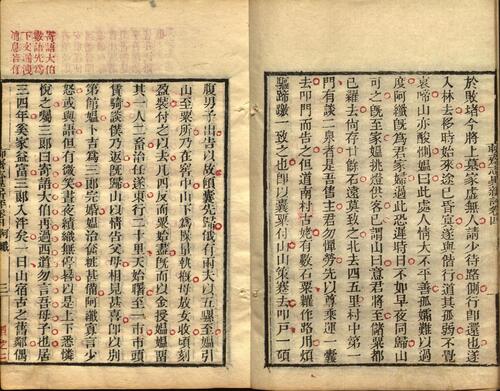 於敗堵今將上墓家虛無人請少待路側行即還也遂
入林去移時始來途已昏冥遂與偕行道其孤弱不覺
哀啼山亦酸惻媼曰此處人情大不平善孤孀難以過
度阿纖既為君家婦過此恐遲時日不如早夜同歸山
可之既至家媼挑燈供客已謂山曰意君將至儲粟都
已糶去尚存廿餘石遠莫致之北去四五里村中第一
門有談二泉者是吾售主君勿憚勞先以尊乘運一囊
去叩門而告之但道南村古姥有數石粟糶作路用煩
驅蹄躈一致之也即以囊粟付山山策蹇去叩戶一碩
腹男子出告以故傾囊先歸俄有兩夫以五騾至媼引
山至粟所乃在窖中山下為操量執概母放女收頃刻
盈裝付之以去凡四反而粟始盡既而以金授媼媼留
其一人二畜治任遂東行二十里天始曙至一市市頭
賃騎談僕乃返既歸山以情告父母相見甚喜即以別
第館媼卜吉為三郎完婚媼治奩粧甚備阿纖寡言少
怒或與語但有微笑晝夜績織無停晷以是上下悉憐
悅之囑三郎曰寄語大伯再過西道勿言吾母子也居
三四年奚家益富三郎入泮矣一日山宿古之舊鄰偶
阿纖 三
寄語大伯
數語先為
下文漏洩
消息